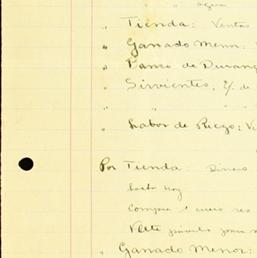 agua
" Tienda: Ventas
" Ganado Menor:
" Banco de Durang
" Sirvientes, %
" "
" Labor de Riego: V
Por Tienda Dinero
hasta hoy
Compra 1 cuero res
" Ganado Menor: